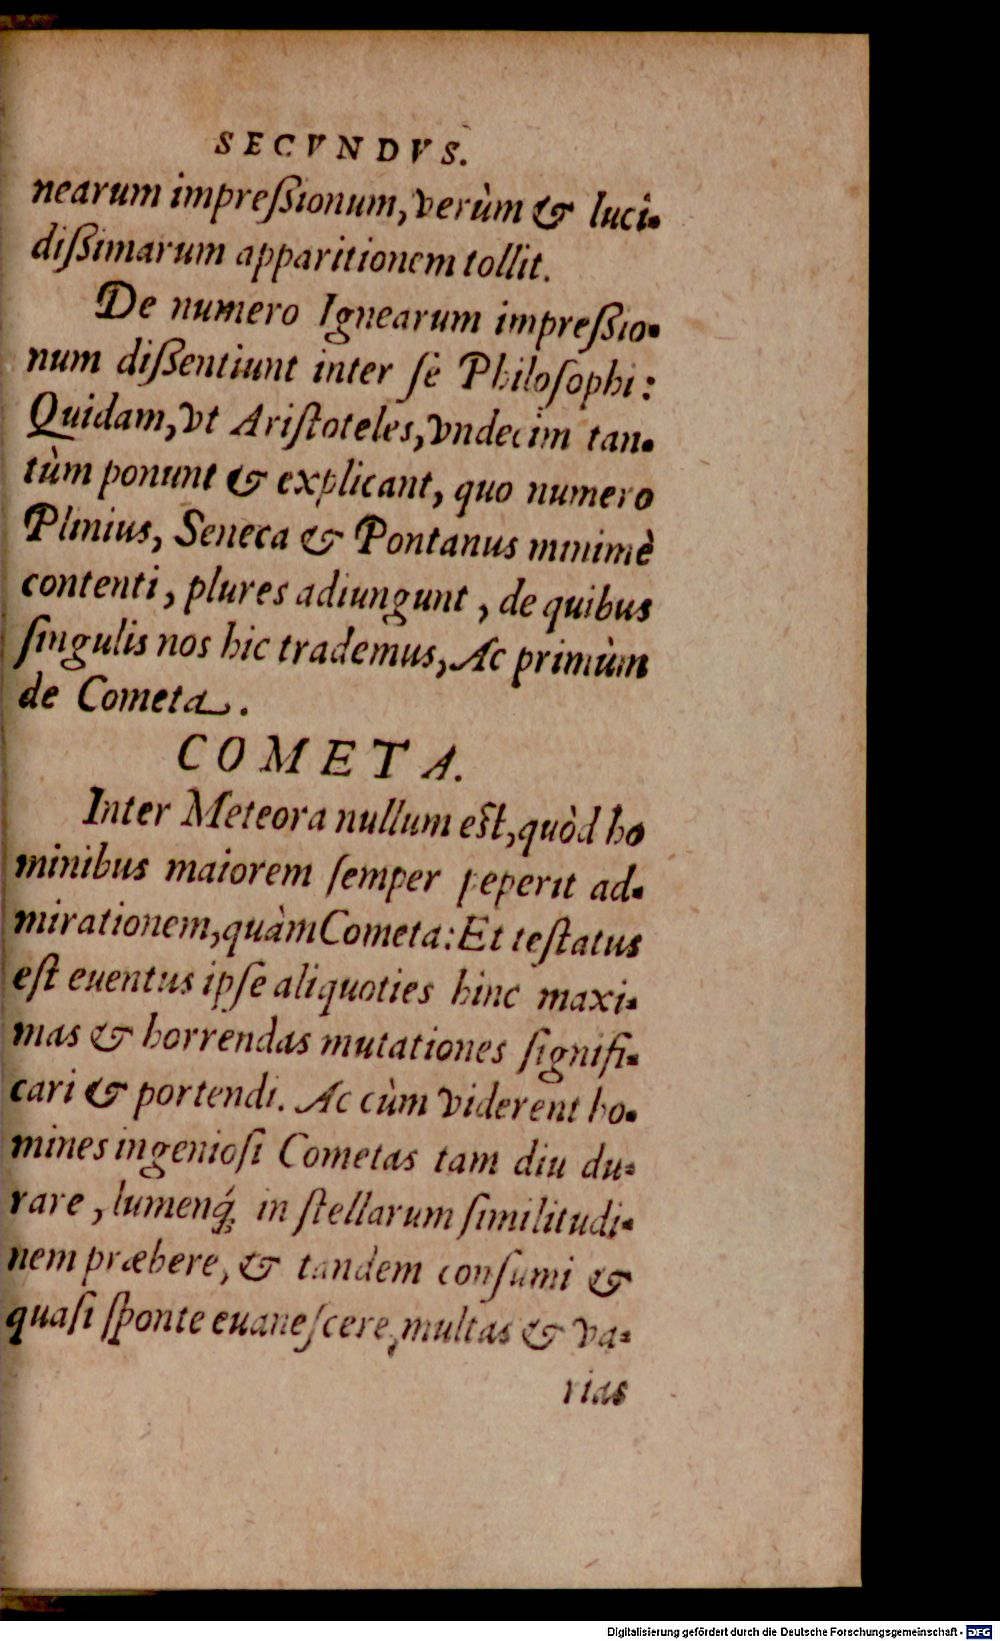 SECVNDVS.
nearum impreßionum, verùm & luci-
dißimarum apparitionem tollit.
De numero Ignearum impreßio-
num dißentiunt inter se Philosophi:
Quidam, vt Aristoteles, vndecim tan-
tùm ponunt & explicant, quo numero
Plinius, Seneca & Pontanus minimè
contenti, plures adiungunt, de quibus
singulis nos hic trademus, Ac primùm
de Cometa.
COMETA.
Inter Meteora nullum est, quòd ho
minibus maiorem semper peperit ad-
mirationem, quàm Cometa: Et testatus
est euentus ipse aliquoties hinc maxi-
mas & horrendas mutationes signifi-
cari & portendi. Ac cùm viderent ho-
mines ingeniosi Cometas tam diu du-
rare, lumenq́; in stellarum similitudi-
nem præbere, & tandem consumi &
quasi sponte euanescere, multas & va-
rias
Digitalisierung gefördert durch die Deutsche Forschungsgemeinschaft - DFG